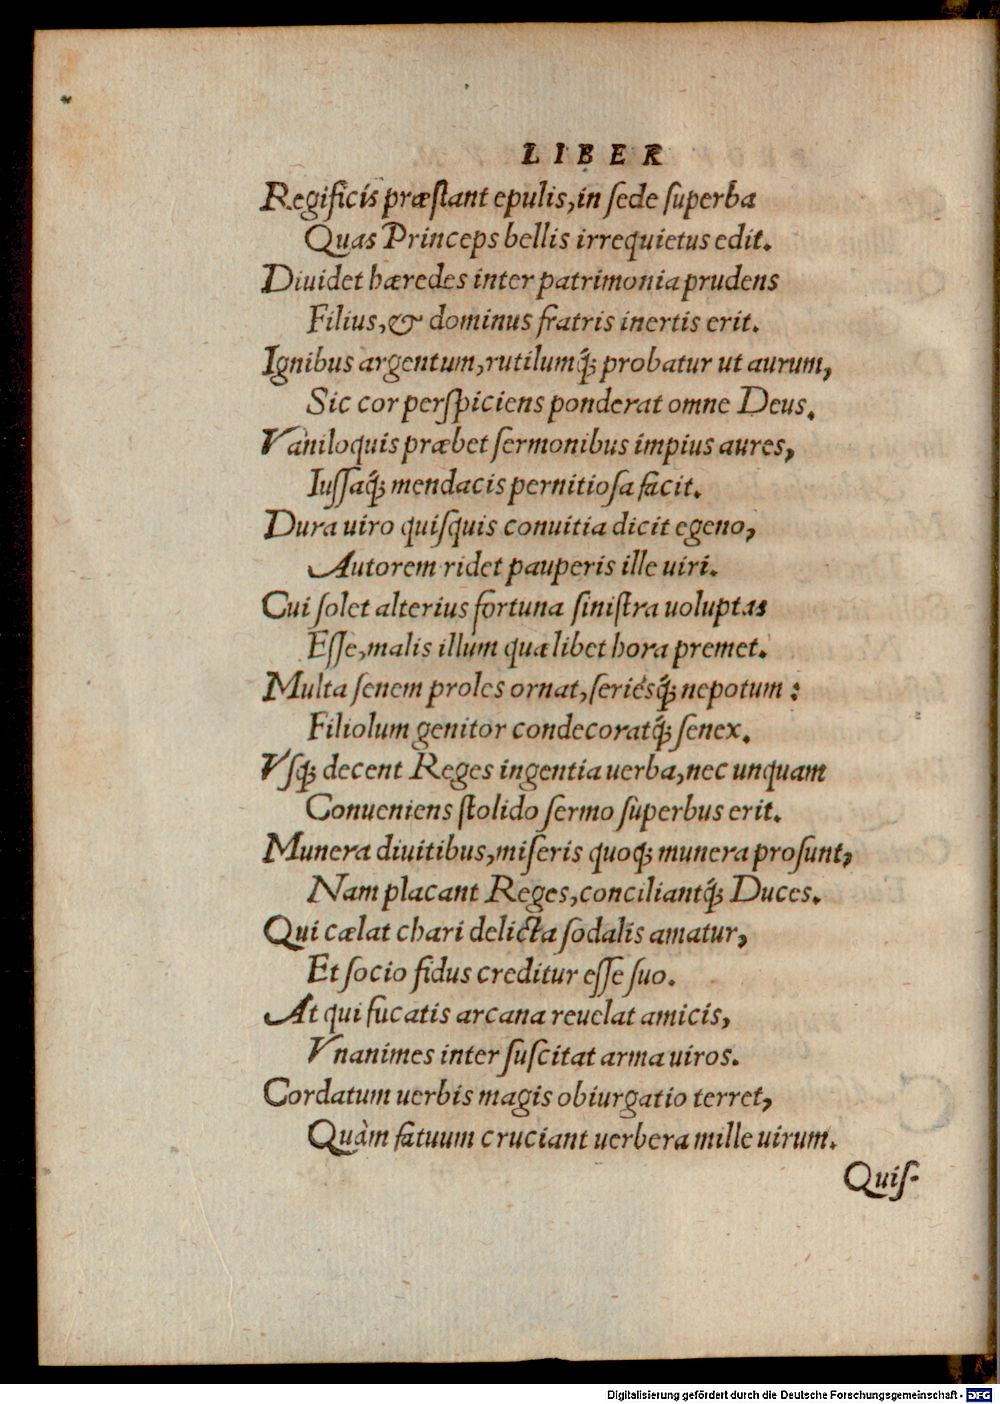 LIBER
Regificis præstant epulis, in sede superba
Quas Princeps bellis irrequietus edit.
Diuidet hæredes inter patrimonia prudens
Filius, & dominus fratris inertis erit.
Ignibus argentum, rutilumq́; probatur ut aurum,
Sic cor perspiciens ponderat omne Deus.
Vaniloquis præbet sermonibus impius aures,
Iussaq́; mendacis pernitiosa facit.
Dura uiro quisquis conuitia dicit egeno,
Autorem ridet pauperis ille uiri.
Cui solet alterius fortuna sinistra uoluptas
Esse, malis illum quælibet hora premet.
Multa senem proles ornat, seriésq́; nepotum:
Filiolum genitor condecoratq́; senex.
Vsq; decent Reges ingentia uerba, nec unquam
Conueniens stolido sermo superbus erit.
Munera diuitibus, miseris quoq; munera prosunt,
Nam placant Reges, conciliantq́; Duces.
Qui cælat chari delicta sodalis amatur,
Et socio fidus creditur esse suo.
At qui fucatis arcana reuelat amicis,
Vnanimes inter suscitat arma uiros.
Cordatum uerbis magis obiurgatio terret,
Quàm fatuum cruciant uerbera mille uirum.
Quis-
Digitalisierung gefördert durch die Deutsche Forschungsgemeinschaft - DFG